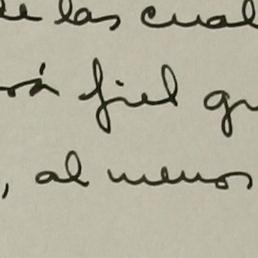 de las cual
rá fiel qu
, al menos